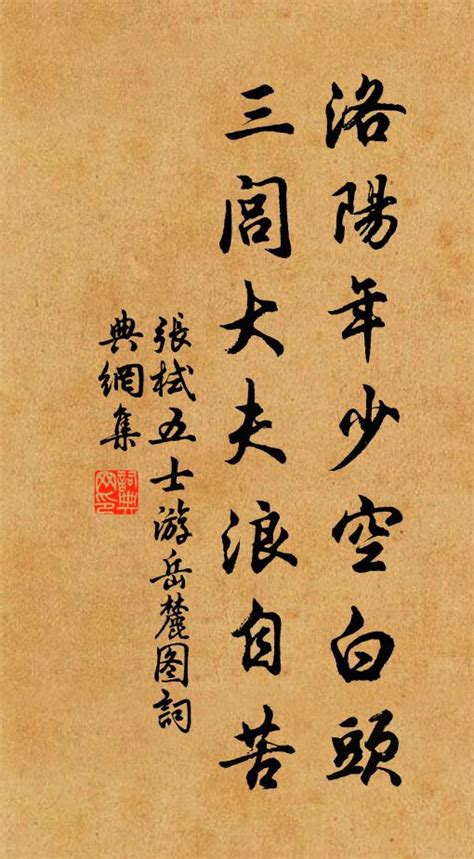 洛陽年少空白頭
三閭大夫浪自苦
張栻五士游岳麓图詞
典網集
詞典
网印